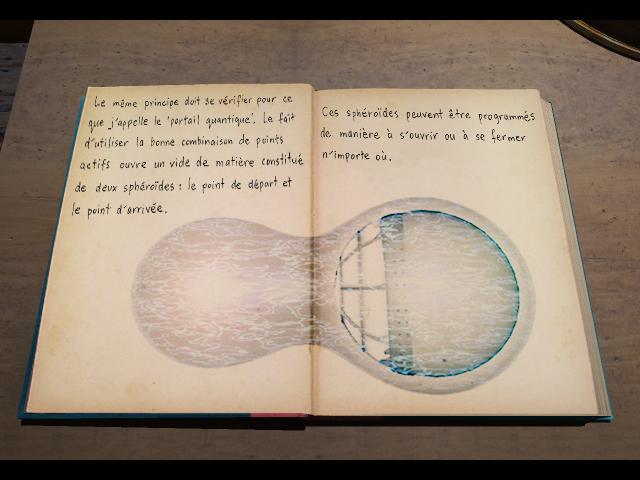 Le même principe doit se vérifier pour ce
que j'appelle le 'portail quantique'. Le fait
d'utiliser la bonne combinaison de points
actifs ouvre un vide de matière constitué
de deux sphéroïdes : le point de départ et
le point d'arrivée.
Ces sphéroïdes peuvent être programmés
de manière à s'ouvrir ou à se fermer
n'importe où.